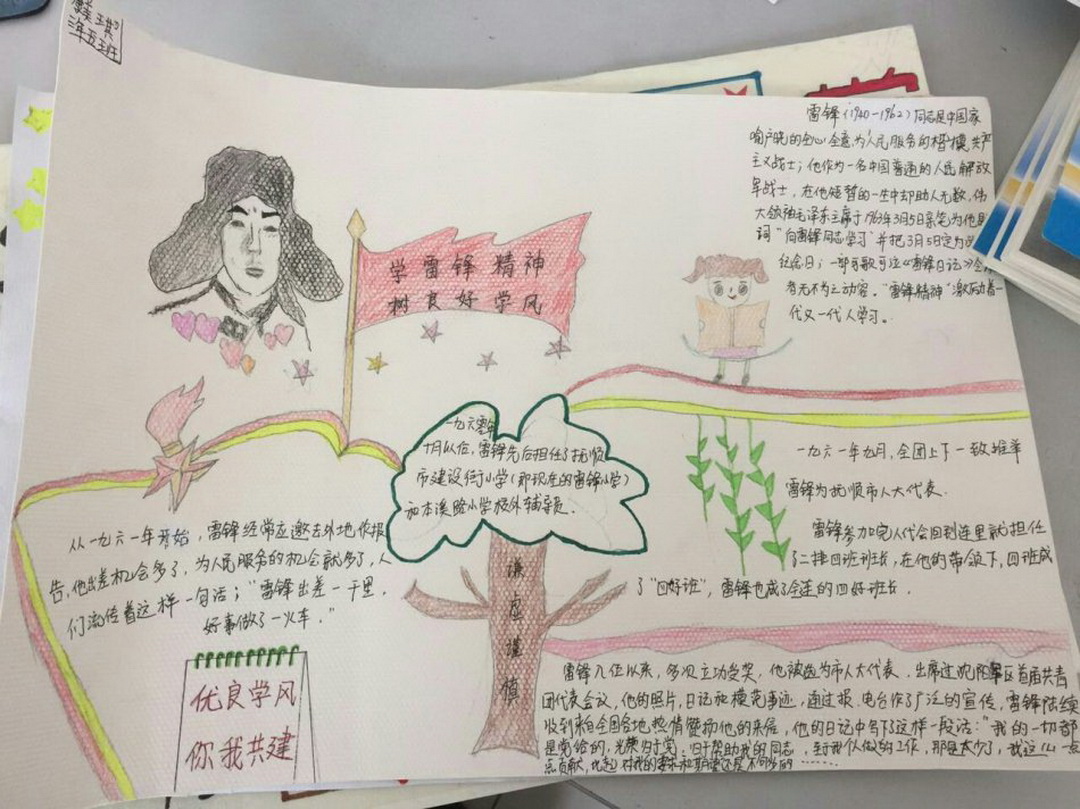 三年五班
雷锋（1940-1962）同志是中国家
喻户晓的全心全意为人民服务的楷模，共产
主义战士；他作为一名中国普通的人民解放
军战士，在他短暂的一生中却助人无数，伟
大领袖毛泽东主席于1963年3月5日亲笔为他
词“向雷锋同志学习”并把3月5日定为
纪念日；一部可歌可泣《雷锋日记》
者无不为之动容。“雷锋精神”激励着一
代又一代人学习。
学雷锋精神
树良好学风
一九六
十月以后，雷锋先后担任了抚顺
市建设街小学（即现在的雷锋小学）
和本溪路小学校外辅导员。
谦虚谨慎
从一九六一年开始，雷锋经常应邀去外地作报
告，他出差机会多了，为人民服务的机会就多了，人
们流传着这样一句话；“雷锋出差一千里，
好事做了一火车.”
优良学风
你我共建
一九六一年九月，全团上下一致推举
雷锋为抚顺市人大代表.
雷锋参加完人代会回到连里就担任
了二排四班班长，在他的带领下，四班成
了“四好班”，雷锋也成了全连的四好班长.
雷锋入伍以来，多次立功受奖，他被选为市人大代表.出席过沈阳军区首届共青
团代表会议，他的照片，日记和模范事迹，通过报.电台作了广泛的宣传，雷锋陆续
收到来自全国各地热情赞扬他的来信，他的日记中写了这样一段话：“我的一切都
是党给的，光荣归于党，归于帮助我的同志，至于我个人做的工作，那是太少了，我这么一点
点贡献，比起